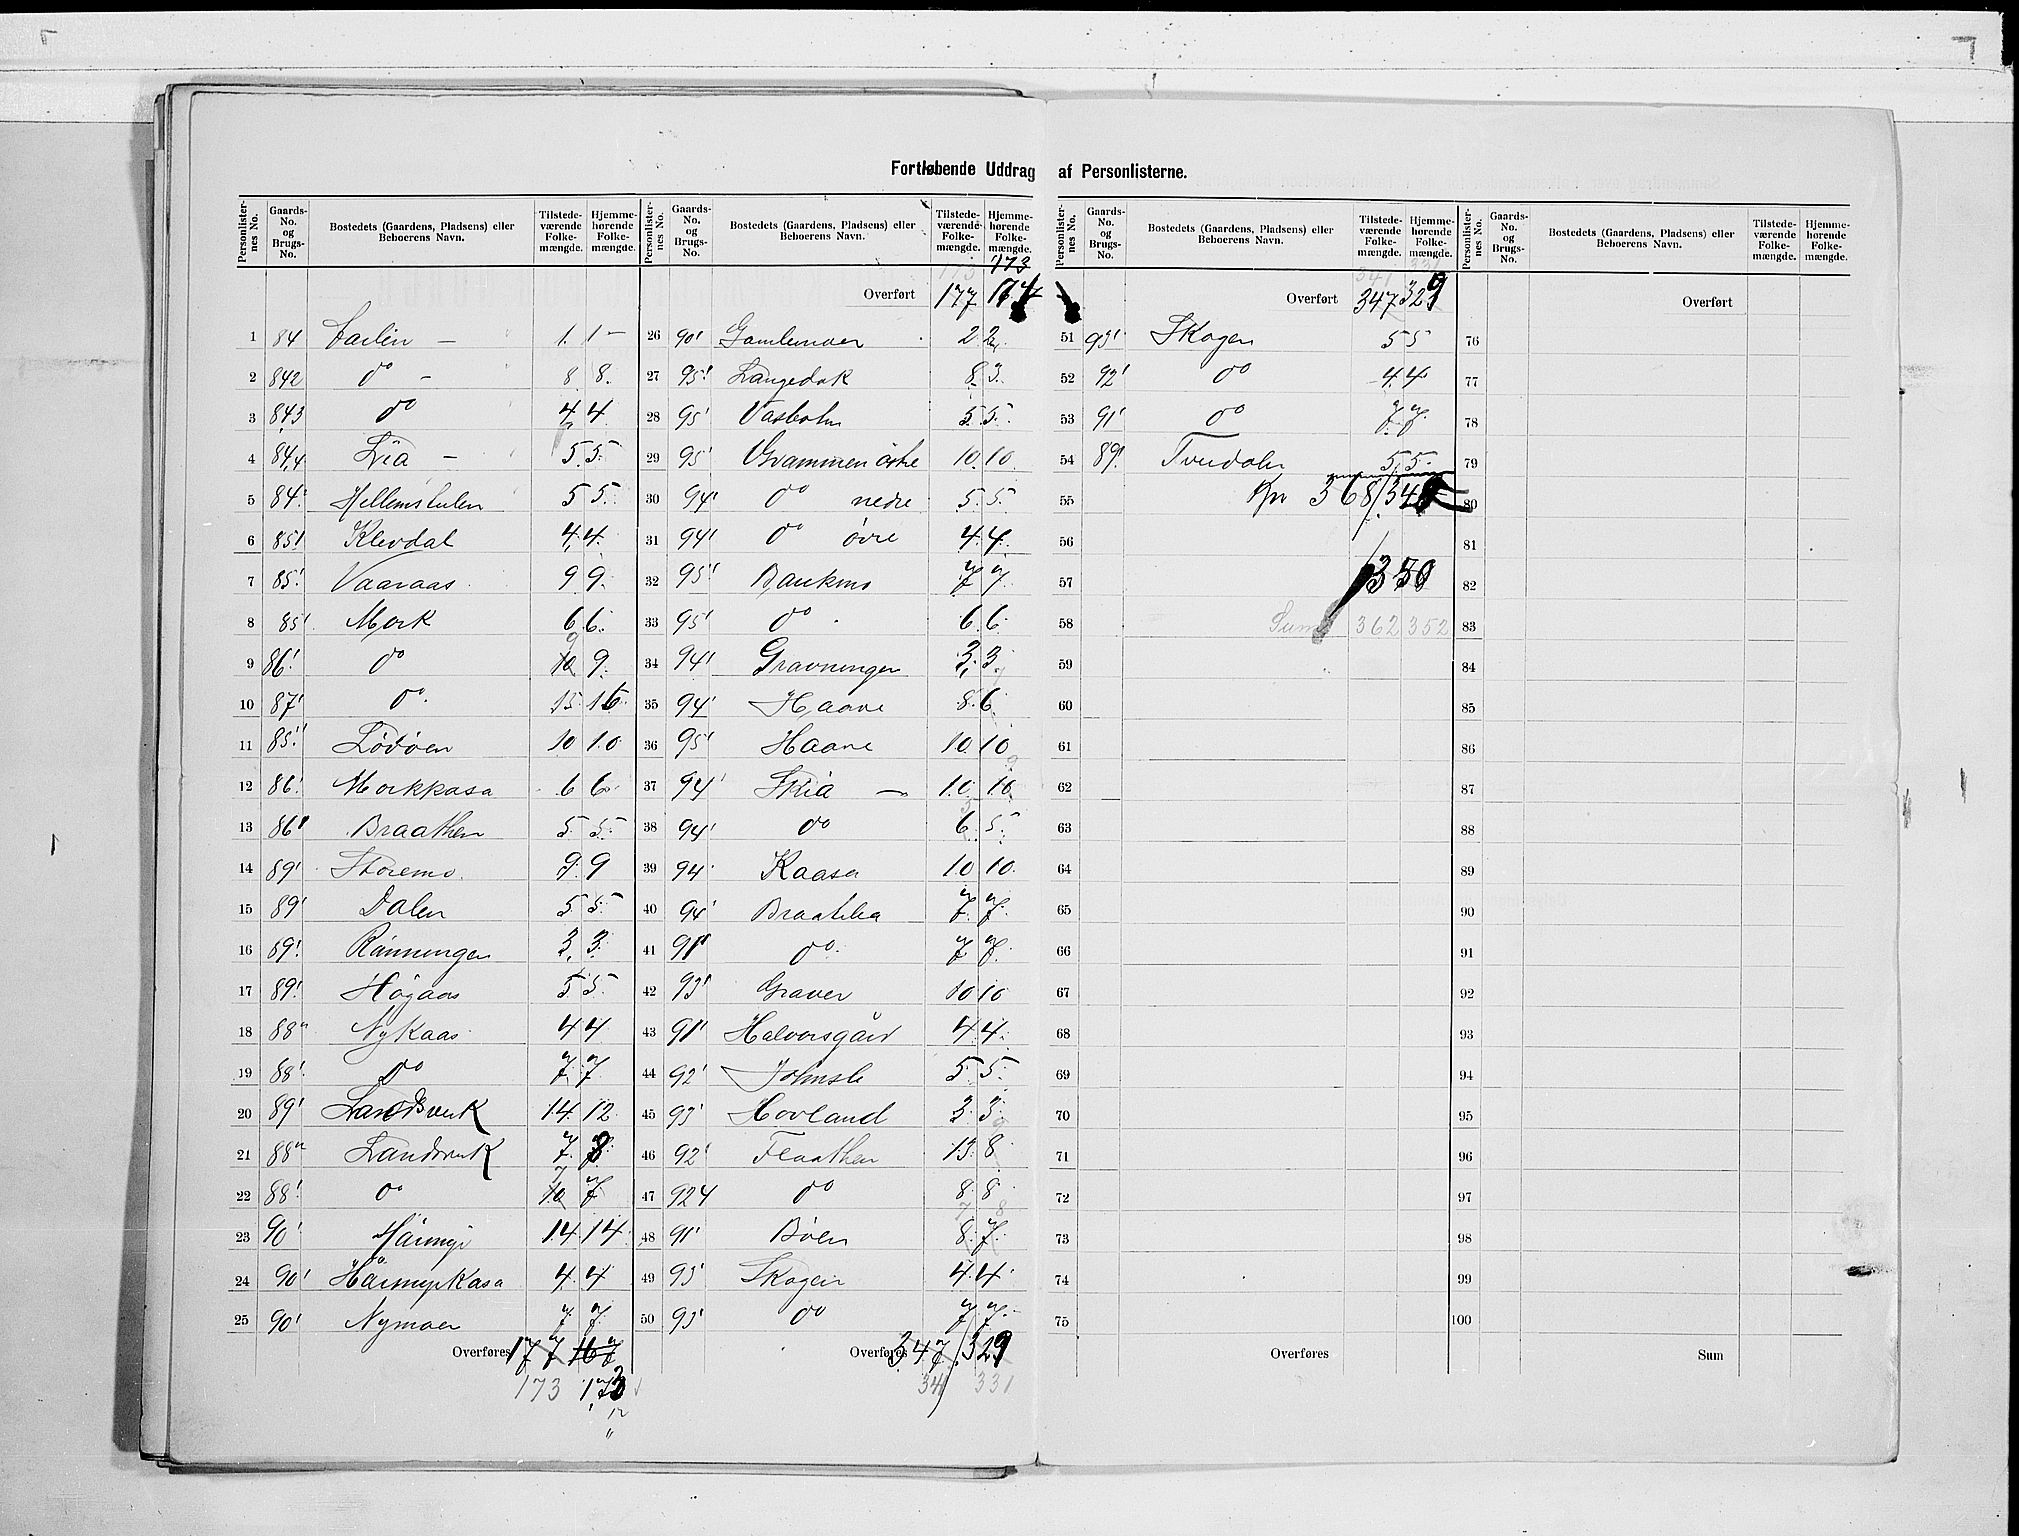 Fortløbende Uddrag af Personlisterne.
Personlister-nes No. Gaards-No. og Brugs-No. Bostedets (Gaardens, Pladsens) eller Beboerens Navn. Tilstede-værende Folke-mængde. Hjemme-hørende Folke-mængde.
1 84 1. 1
2 842 do 8. 8.
3 84,3 do 4 4.
4 84,4 Lia 5. 5.
5 84. 5 5.
6 85.1 Klevdal 4. 4.
7 85.1 Vaaraas 9 9.
8 85.1 Mork 6 6.
9 86.1 do 10 9 9.
10 87.1 do. 15. 16.
11 85.1 10 10
12 86. Morkkasa 6 6
13 86 Braathen 5. 5.
14 89.1 Storemo. 9. 9
15 89.1 Dalen 5 5.
16 89.1 Rönningen 3. 3.
17 89.1 Högaas 5 5.
18 88 Nykaas 4 4
19 88.1 do 7. 7.
20 89.1 Landsverk 14. 12.
21 88 Landsverk 7.
22 88.1 do 10 7 7.
23 90.1 14 14.
24 90.1 4. 4
25 90.1 Nymoen 7. 7.
Overføres 177 167
173 173
Personlister-nes No. Gaards-No. og Brugs-No. Bostedets (Gaardens, Pladsens) eller Beboerens Navn. Tilstede-værende Folke-mængde. Hjemme-hørende Folke-mængde.
173 173
Overført 177
26 90.1 Gamlemoen 2.
27 95.1 Langedok 8. 3.
28 95.1 Vasbotn 5. 5.
29 95.1 Gvammen östre 10. 10.
30 94.1 do nedre 5. 5.
31 94.1 do övre 4. 4.
32 95.1 7. 7.
33 95.1 do 6. 6.
34 94.1 Gravningen 3. 3.
35 94.1 Haave 8. 6.
36 95.1 Haave 10. 10
37 94.1 Skia 10. 10
38 94.1 do 6. 5.
39 94. Kaasa 10 10.
40 94.1 7. 7.
41 91.1 do. 7 7.
42 93.1 Graver 10 10
43 91.1 Halvorsgård 4. 4.
44 92.1 5. 5.
45 93.1 Hovland 3. 3.
46 92.1 Flaathen 13. 8.
47 924 do 8. 8.
48 91.1 Böen 8. 7.
49 93.1 Skogen 4. 4.
50 93.1 do 7. 7.
Overføres 347 329
341 331
Personlister-nes No. Gaards-No. og Brugs-No. Bostedets (Gaardens, Pladsens) eller Beboerens Navn. Tilstede-værende Folke-mængde. Hjemme-hørende Folke-mængde.
341 331
Overført 347 329
51 93.1 Skogen 5 5
52 92.1 do 4. 4
53 91.1 do 7. 7.
54 89. 5. 5.
55 368
56
57 350
58 Sum 362 352
59
60
61
62
63
64
65
66
67
68
69
70
71
72
73
74
75
Overføres
Personlister-nes No. Gaards-No. og Brugs-No. Bostedets (Gaardens, Pladsens) eller Beboerens Navn. Tilstede-værende Folke-mængde. Hjemme-hørende Folke-mængde.
Overført
76
77
78
79
80
81
82
83
84
85
86
87
88
89
90
91
92
93
94
95
96
97
98
99
100
Sum